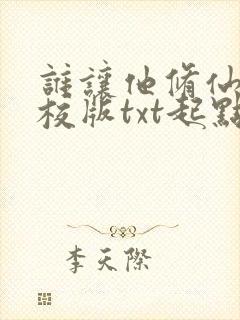 誰讓他脩仙
校版txt起點
李天際